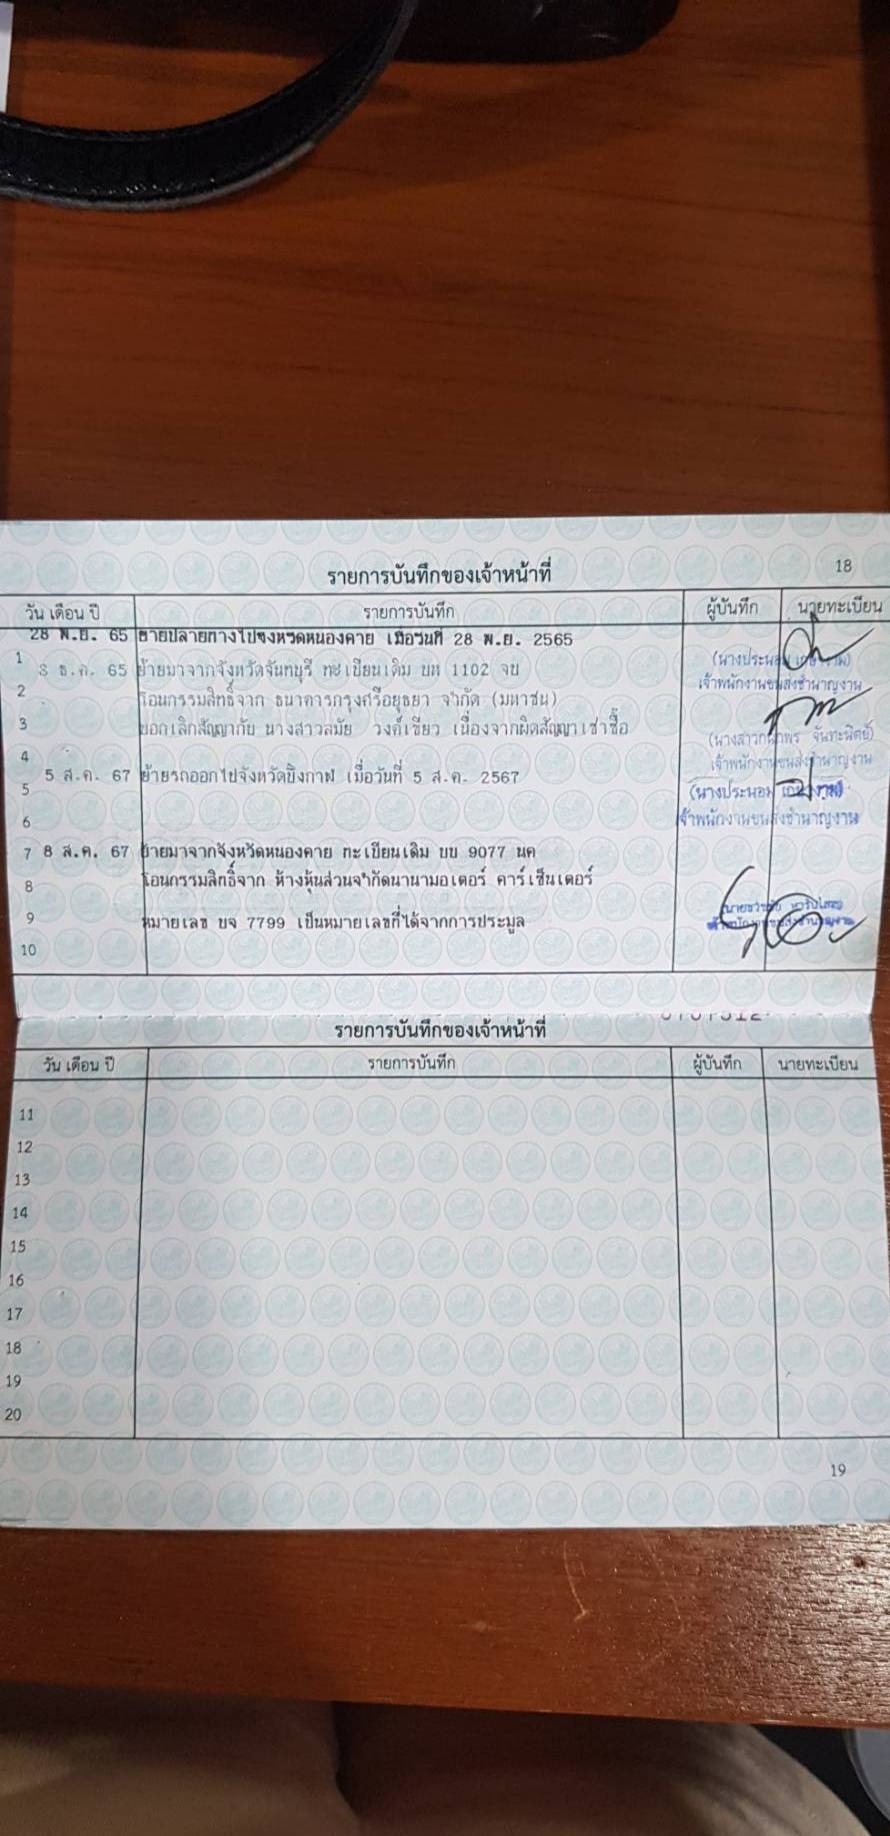 รายการบันทึกของเจ้าหน้าที่ 18
วัน เดือน ปี รายการบันทึก ผู้บันทึก นายทะเบียน
28 พ.ย. 65 ย้ายปลายทางไปจังหวัดหนองคาย เมื่อวันที่ 28 พ.ย. 2565
1 8 ธ.ค. 65 ย้ายมาจากจังหวัดจันทบุรี ทะเบียนเดิม บห 1102 จบ (นางประนอม
2 โอนกรรมสิทธิ์จาก ธนาคารกรุงศรีอยุธยา จำกัด (มหาชน) เจ้าพนักงานขนส่งชำนาญงาน
3 บอกเลิกสัญญากับ นางสาวสมัย วงค์เขียว เนื่องจากผิดสัญญาเช่าซื้อ (นางสาว
4 เจ้าพนักงานขนส่งชำนาญงาน
5 5 ส.ค. 67 ย้ายรถออกไปจังหวัดบึงกาฬ เมื่อวันที่ 5 ส.ค. 2567 (นางประนอม
6 เจ้าพนักงานขนส่งชำนาญงาน
7 8 ส.ค. 67 ย้ายมาจากจังหวัดหนองคาย ทะเบียนเดิม บบ 9077 นค
8 โอนกรรมสิทธิ์จาก ห้างหุ้นส่วนจำกัดนานามอเตอร์ คาร์เซ็นเตอร์
9 หมายเลข บจ 7799 เป็นหมายเลขที่ได้จากการประมูล
10
รายการบันทึกของเจ้าหน้าที่
วัน เดือน ปี รายการบันทึก ผู้บันทึก นายทะเบียน
11
12
13
14
15
16
17
18
19
20
19